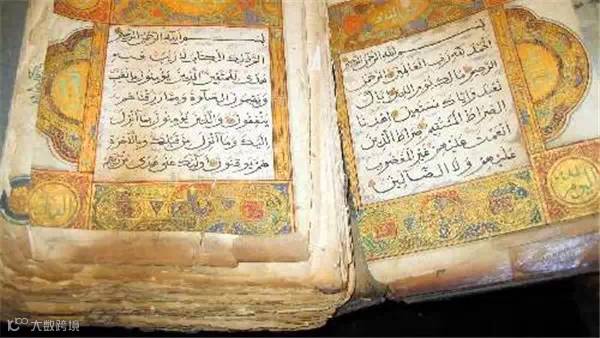 بسم الله الرحمن الرحيم
الحمد لله رب العالمين الرحمن
الرحيم مالك يوم الدين اياك
نعبد واياك نستعين اهدنا
الصراط المستقيم صراط الذين
انعمت عليهم غير المغضوب
عليهم ولا الضالين
بسم الله الرحمن الرحيم
الم ذلك الكتاب لا ريب فيه
هدى للمتقين الذين يؤمنون بالغيب
ويقيمون الصلوة ومما رزقناهم
ينفقون والذين يؤمنون بما انزل
اليك وما انزل من قبلك وبالاخرة
هم يوقنون اولئك على هدى من ربهم
大数跨境